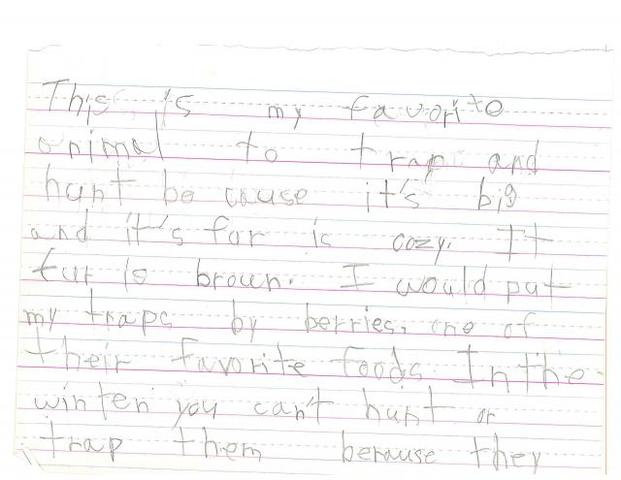 This is my favorite
animal to trap and
hunt be cause it's big
and it's fur is cozy. It
fur is brown. I would put
my traps by berries, one of
their favorite foods In the
winter you can't hunt or
trap them because they